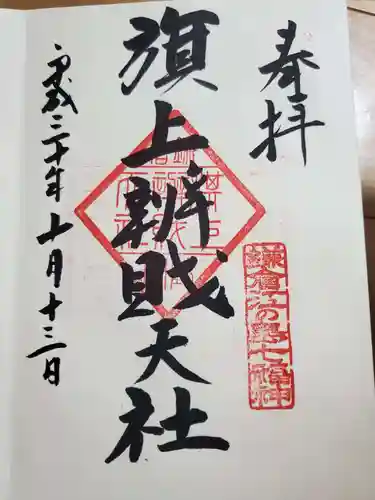 奉拝
鎌倉江の島七福神
旗上弁財天社
平成三十年十月十三日